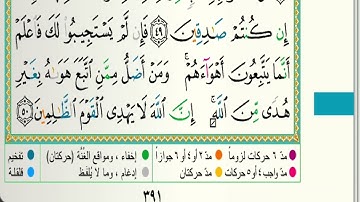 إِن كُنتُمْ صَٰدِقِينَ ٤٩ فَإِن لَّمْ يَسْتَجِيبُوا۟ لَكَ فَٱعْلَمْ
أَنَّمَا يَتَّبِعُونَ أَهْوَآءَهُمْ ۚ وَمَنْ أَضَلُّ مِمَّنِ ٱتَّبَعَ هَوَىٰهُ بِغَيْرِ
هُدًى مِّنَ ٱللَّهِ ۚ إِنَّ ٱللَّهَ لَا يَهْدِى ٱلْقَوْمَ ٱلظَّٰلِمِينَ ٥٠
مدّ ٦ حركات لزوماً مدّ ٢ أو ٤ أو ٦ جوازاً إخفاء، ومواقع الغُنَّة (حركتان) تفخيم
مدّ واجب ٤ أو ٥ حركات مدّ حركتان إدغام، وما لا يُلفَظ قلقلة
٣٩١